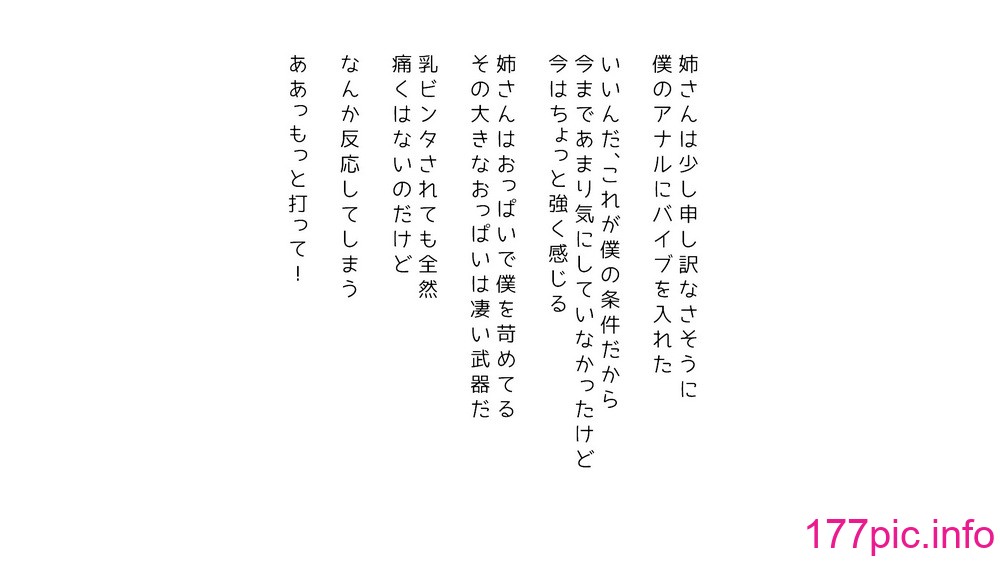 姉さんは少し申し訳なさそうに
僕のアナルにバイブを入れた
いいんだ、これが僕の条件だから
今まであまり気にしていなかったけど
今はちょっと強く感じる
姉さんはおっぱいで僕を苛めてる
その大きなおっぱいは凄い武器だ
乳ビンタされても全然
痛くはないのだけど
なんか反応してしまう
ああっもっと打って!
177pic.info